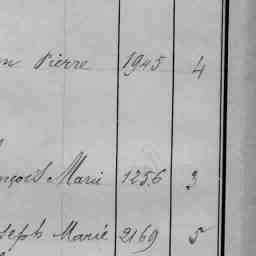 n Pierre 1945 4
nçois Marie 1256 3
seph Marie 2169 5